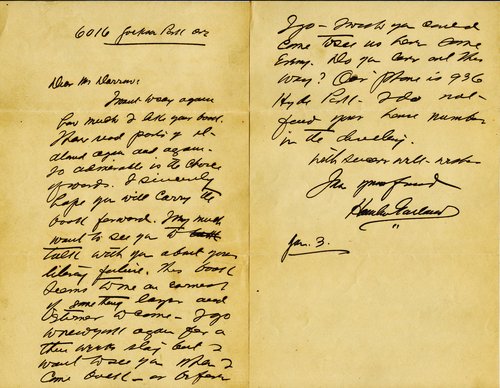 6016 Jackson Park Ave
Dear Mr Darrow:
I must say again
how much I like your book.
I have read parts of it
aloud again and again.
So admirable is the choice
of words. I sincerely
hope you will carry the
book forward. I very much
want to see you &
talk with you about your
literary future. This book
seems to me an earnest
of something larger and
to come – I go
to New York again for a
three weeks stay but I
want to see you when I
come back – or before
I go – I wish you could
come to see us here some
Evng. Do you ever get this
way? Our phone is 936
Hyde Park. I do not
find your house number
in the directory.
With sincere well-wishes
I am your friend
Hamlin Garland
Jan. 3.